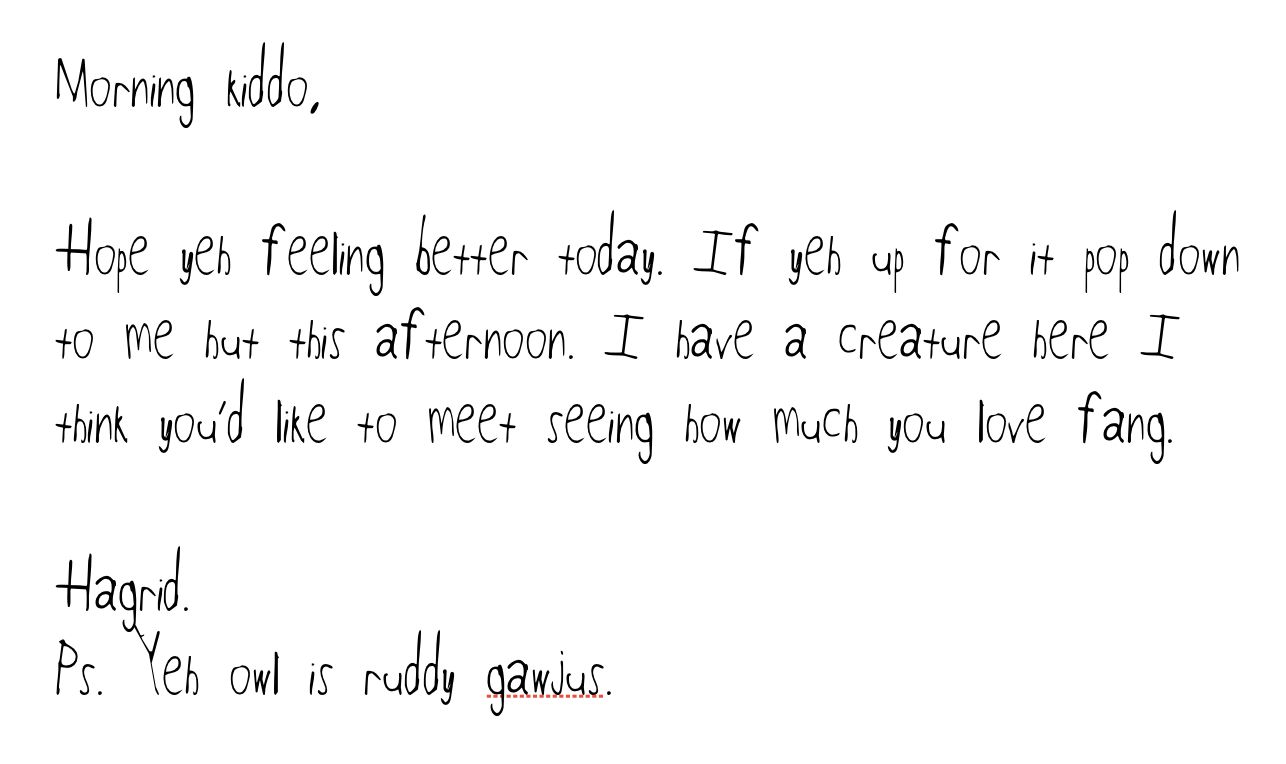 Morning kiddo,
Hope yeh feeling better today. If yeh up for it pop down
to me hut this afternoon. I have a creature here I
think you'd like to meet seeing how much you love fang.
Hagrid.
Ps. Yeh owl is ruddy gawjus.